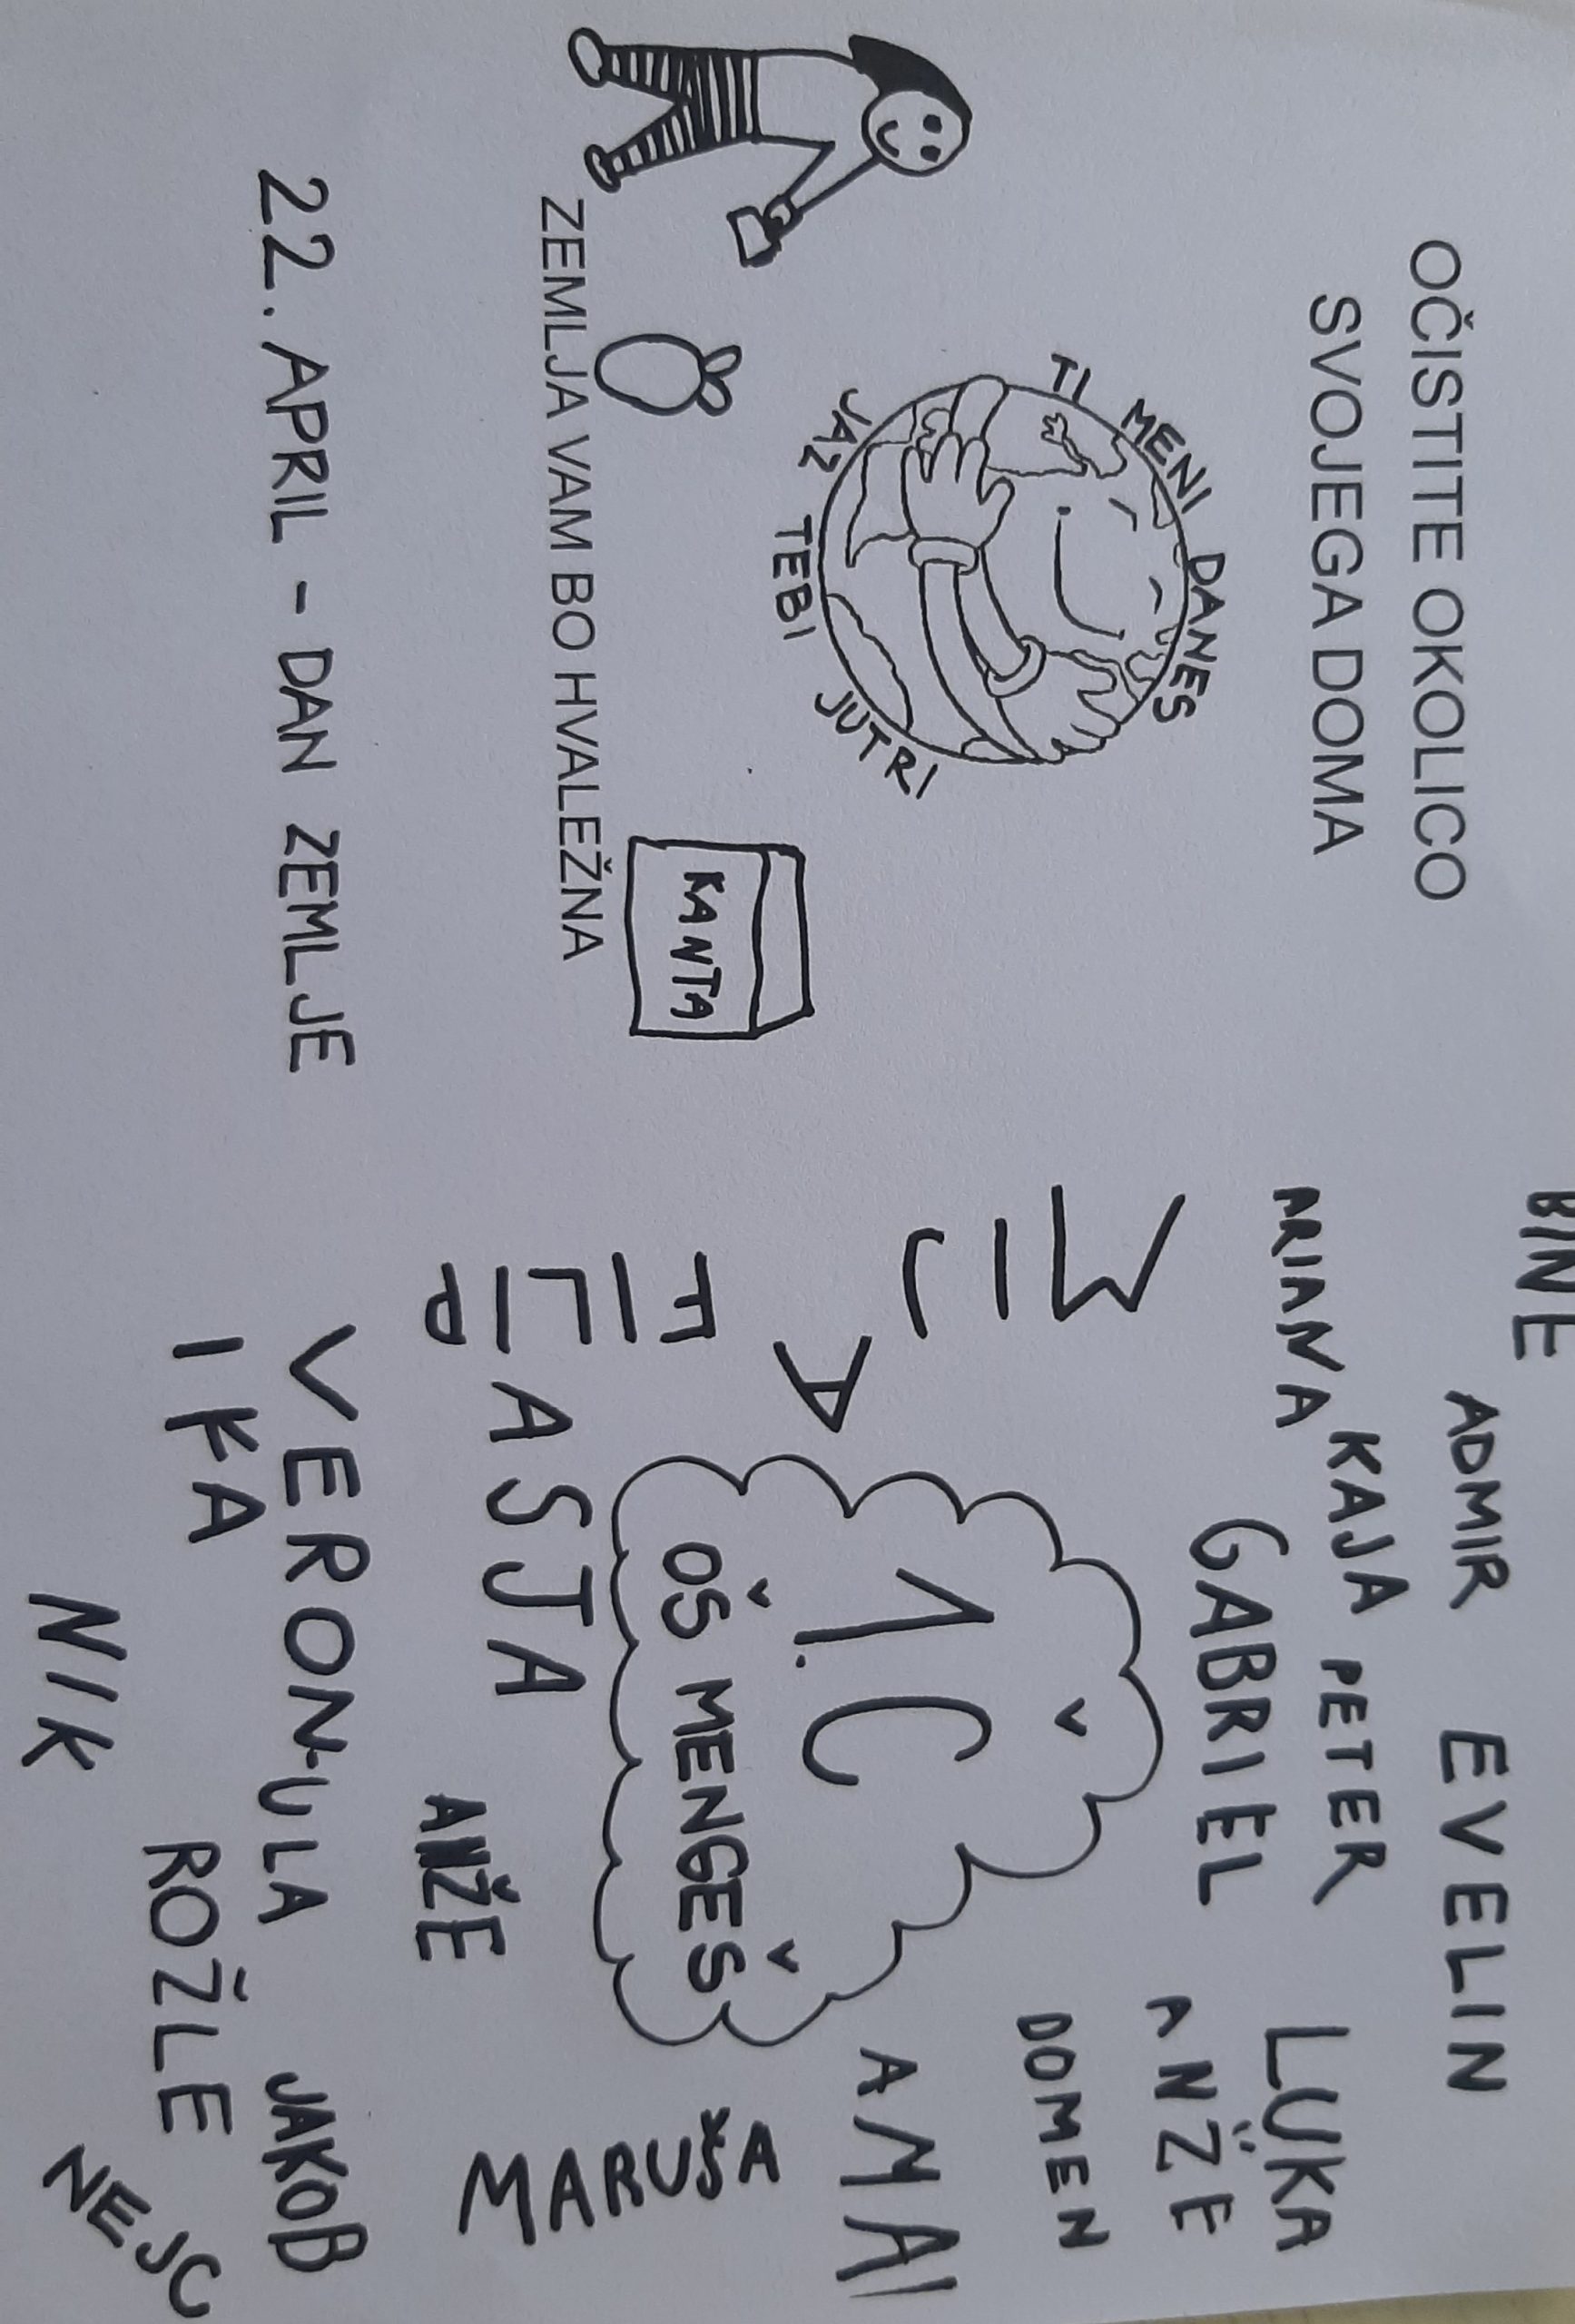 OČISTITE OKOLICO
SVOJEGA DOMA
TI MENI DANES
JAZ TEBI JUTRI
KANTA
ZEMLJA VAM BO HVALEŽNA
22. APRIL - DAN ZEMLJE
BINE
ADMIR EVELIN
ARIANA KAJA PETER
GABRIEL LUKA
ANŽE
MIJA
DOMEN
1.Č
OŠ MENGEŠ
ANA
FILIP
ASJA
MARUŠA
ANŽE
VERON
IKA
ULA
JAKOB
ROŽLE
NIK
NEJC